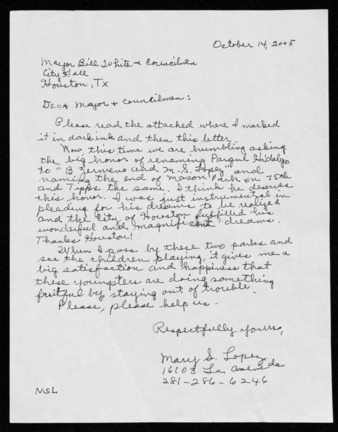 October 14, 2005
Mayor Bill White & Councilmen
City Hall
Houston, Tx
Dear Mayor & councilman:
Please read the attached where I marked
it in dark ink and then this letter.
Now this time we are humbling asking
the big honor of renaming Parque Hidalgo
to "B Zermeno and M.S. Lopez" and
naming the end of Mason Park on 75th
and Tipps the same. I think he deserves
this honor. I was just instrumental in
pleading for his dreams to be realized
and the City of Houston fulfilled his
wonderful and magnificent dreams.
Thanks Houston!
When I pass by these two parks and
see the children playing, it gives me a
big satisfaction and happiness that
these youngsters are doing something
fruitful by staying out of trouble.
Please, please help us.
Respectfully yours,
Mary S. Lopez
16103 La
281-286-6246
MSL